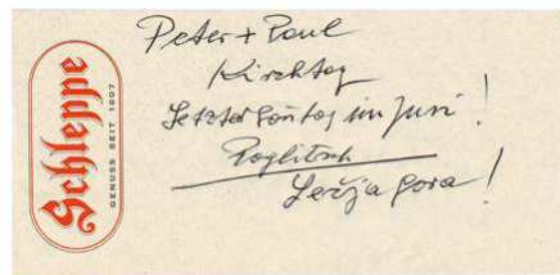 Schleppe
GENUSS SEIT 1607
Peter + Paul
Kirchtag
Letzter Sontag im Juni!
Roglitsch
Ležja gora!